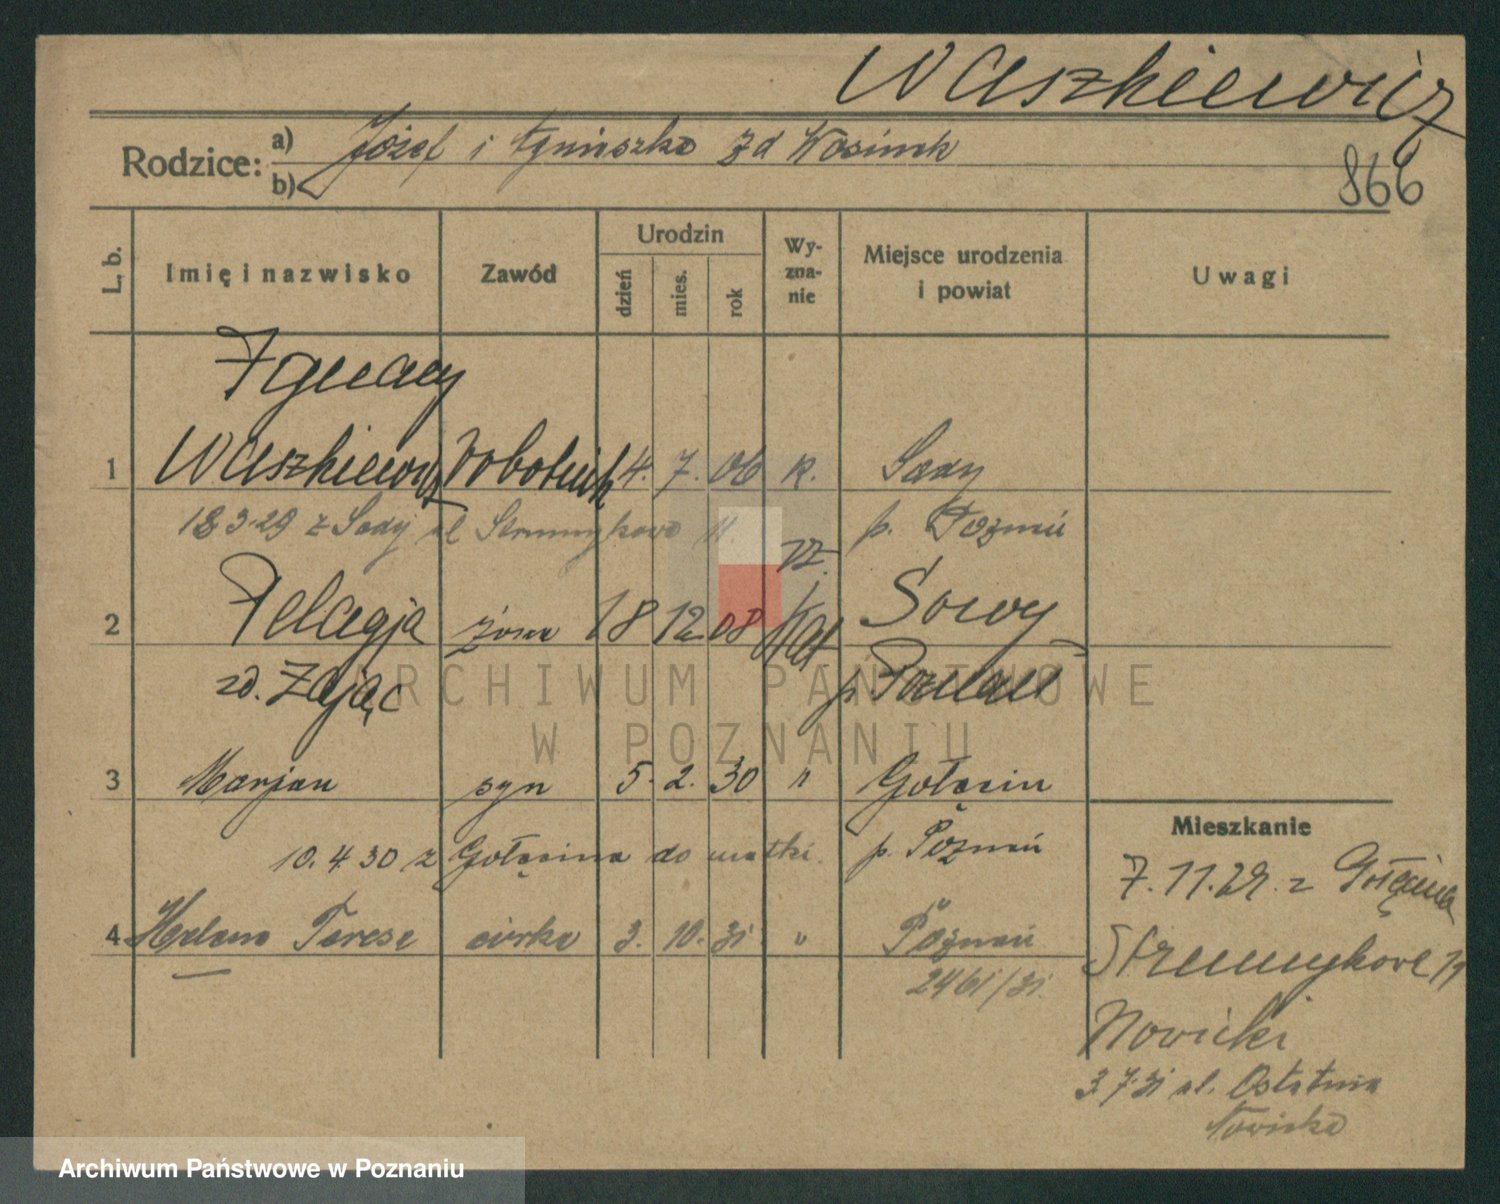 Waszkiewicz
866
Rodzice: a) Józef i Agnieszka zd Kosinek
b)
L. b. Imię i nazwisko Zawód Urodzin dzień mies. rok Wy-zna-nie Miejsce urodzenia i powiat Uwagi
Ignacy
1 Waszkiewicz robotnik 4. 7. 06 k. Sady
18 3.29 z Sady ul Strumykowa 11. p. Poznań
rz.
2 Pelagja żona 18 12 08 kat Sowy
zd. Zając p Poznań
3 Marjan syn 5. 2. 30 " Golęcin
Mieszkanie
10. 4. 30 z Golęcina do matki. p. Poznań
7. 11. 29. z Golęcina
4 Helena Teresa córka 3. 10. 31 " Poznań
Strumykowa 11
2461/31.
Nowicki
3.7.31 ul. Ostatnia
Nowicka
ARCHIWUM PAŃSTWOWE
W POZNANIU
Archiwum Państwowe w Poznaniu